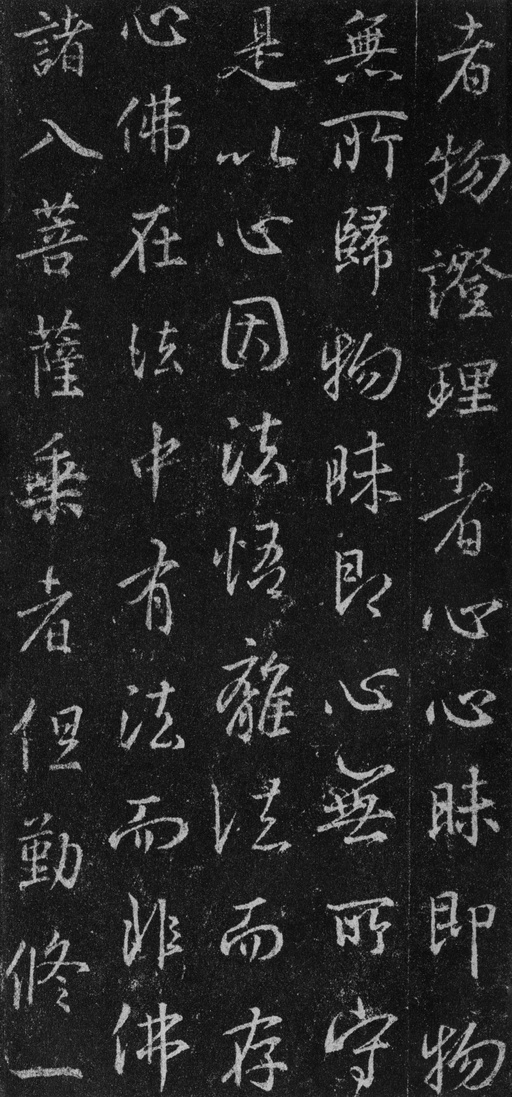 者物證理者心心昧即物
無所歸物昧即心無所守
是以心因法悟離法而存
心佛在法中有法而非佛
諸入菩薩乘者但勤修一